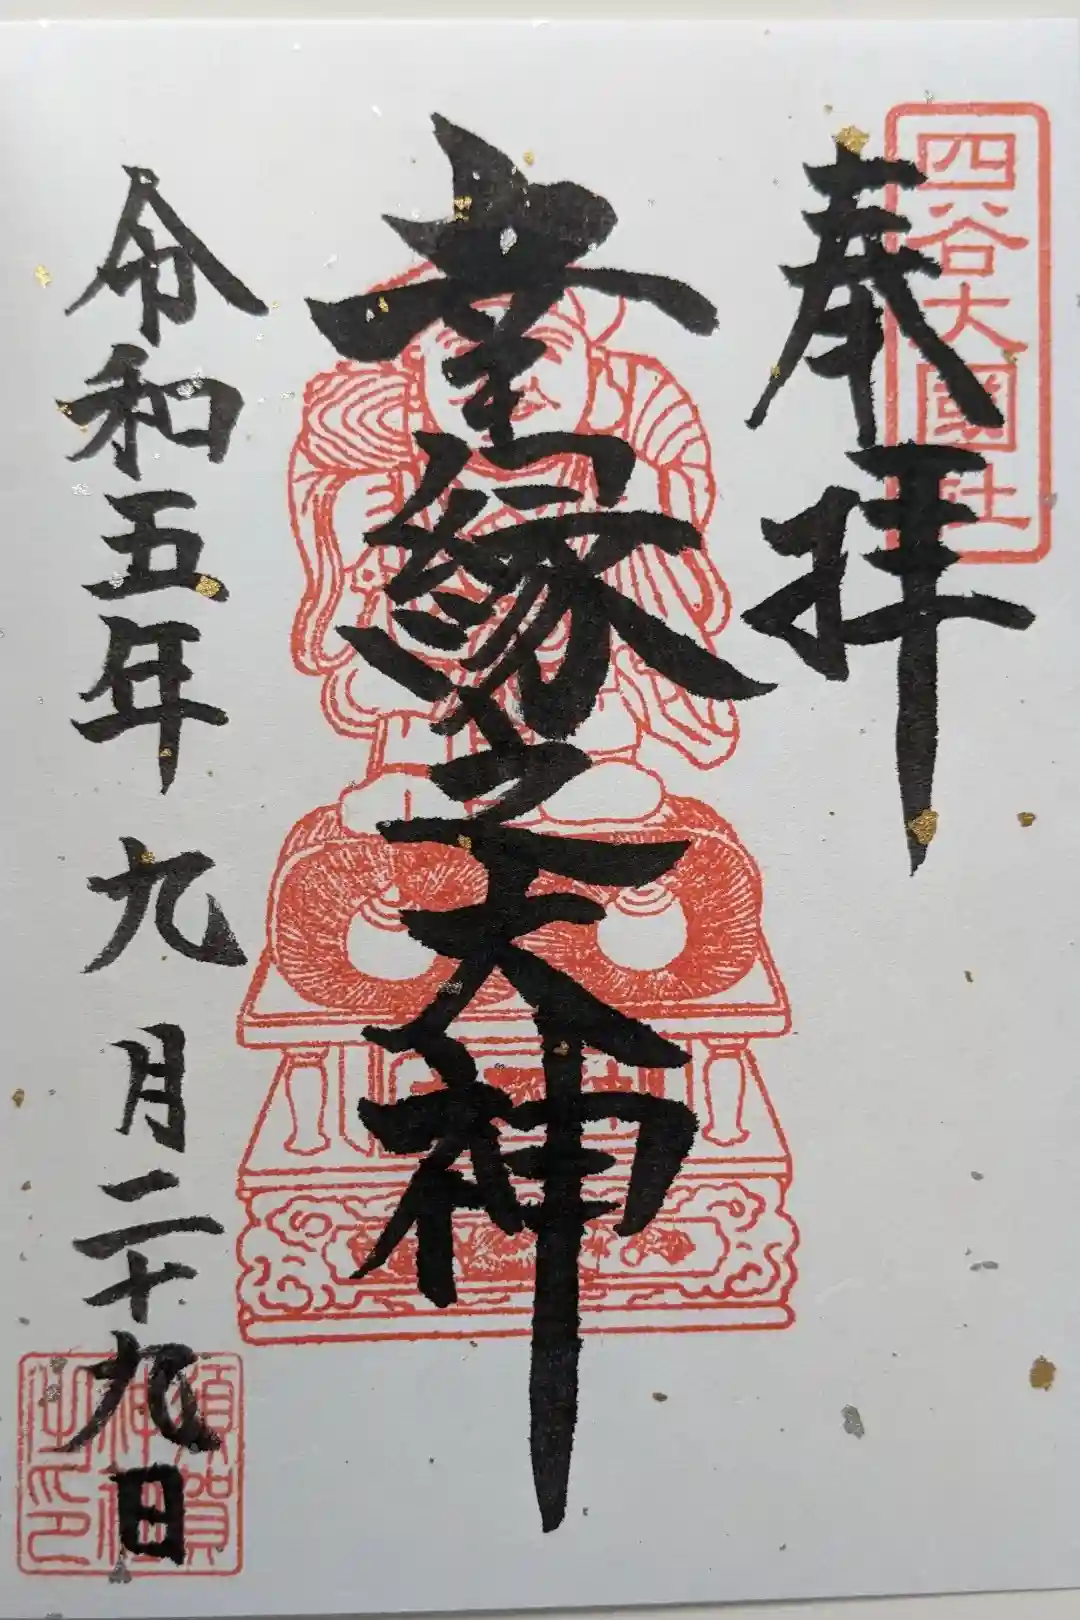 四谷大國社
奉拝
幸縁之大神
令和五年九月二十九日
須賀神社之印